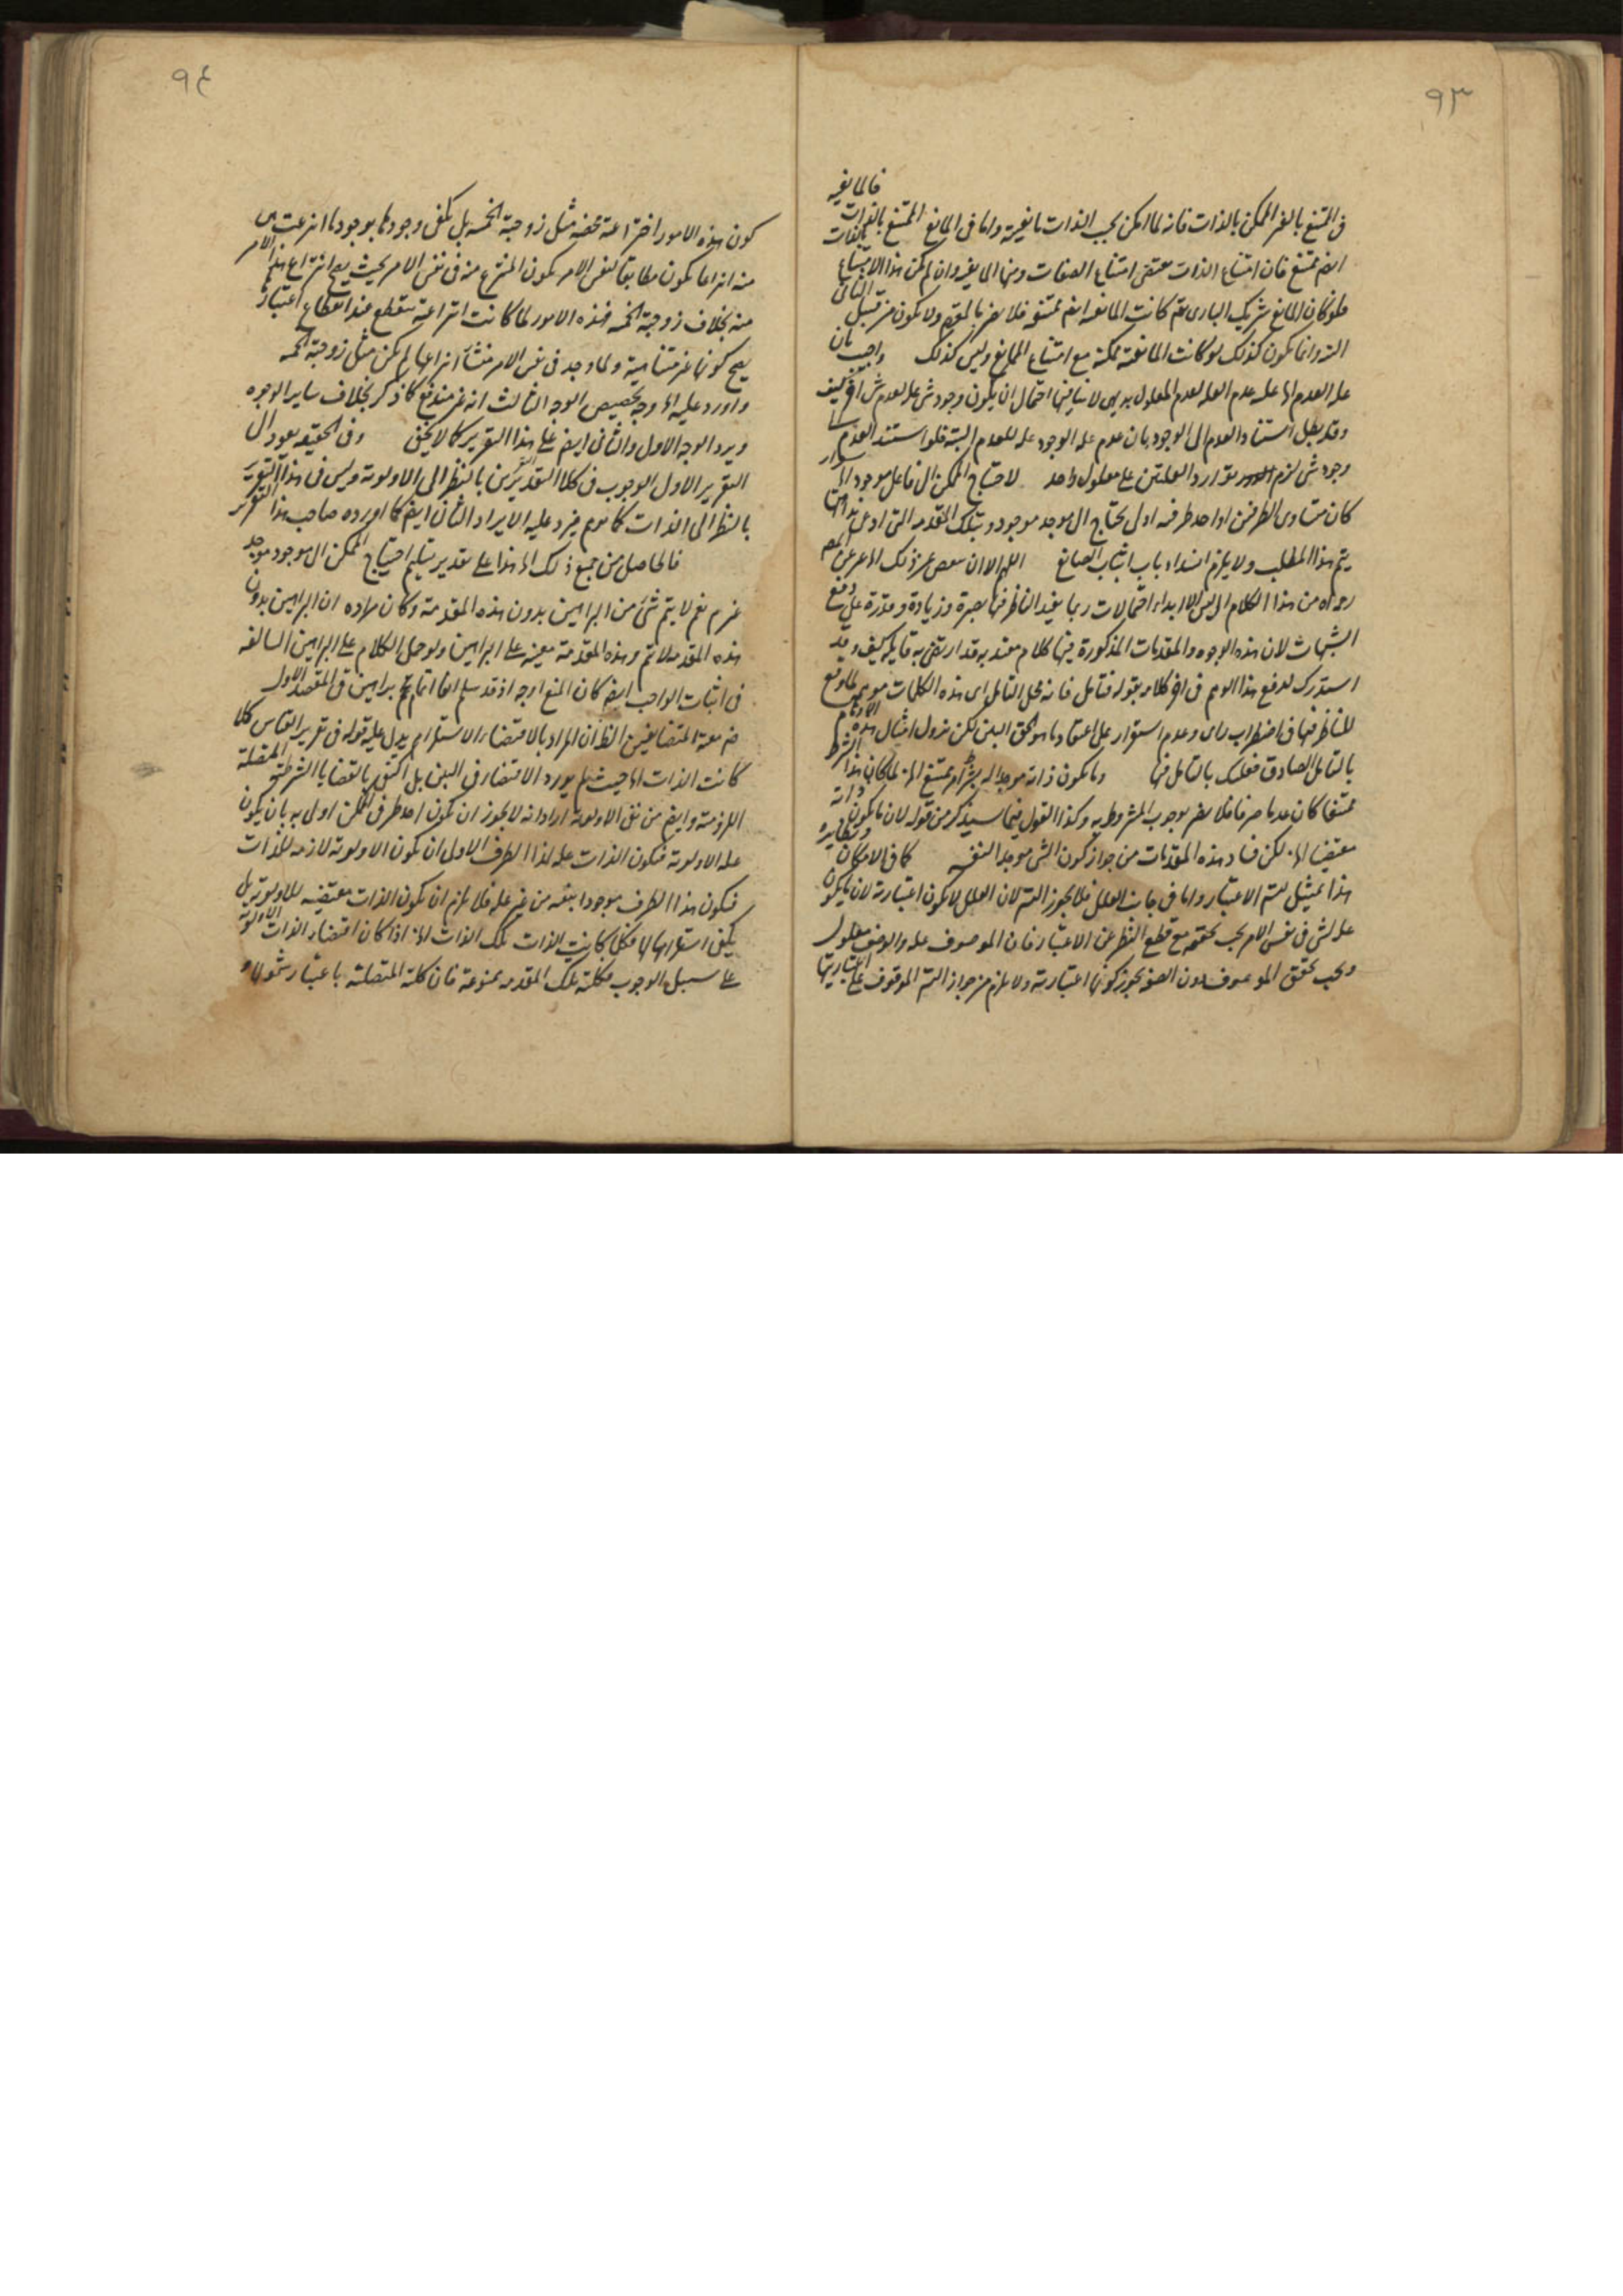 ٩٣
فالمانعية
فى الممتنع بالغير الممكن بالذات فانه لما امكن بحسب الذات مانعيته واما فى المانع الممتنع بالذات
ايضا ممتنع فان امتناع الذات مقتضى امتناع الصفات ومنها المانعية وان لم يكن هذا الامتناع بالذات
فلو كان المانع شريك البارى تعم كانت المانعية ايضا ممتنعة فلا يضر بالمقدم ولا يكون من قبيل الثانى
انما يكون كذلك لو كانت المانعية ممكنة مع امتناع المانع وليس كذلك واجيب بان
علة العدم الخ علية عدم العلة لعدم المعلول بديهى لا ينافيها احتمال ان يكون وجود شئ علة لعدم شئ اخر كيف
وقد يبطل استناد العدم الى الوجود بان عدم علة الوجود علة للعدم البتة فلو استند العدم الى
وجود شئ لزم توارد العلتين على معلول واحد لاحتياج الممكن الى فاعل موجود الخ سواء
كان متساوى الطرفين او احد طرفيه اولى يحتاج الى موجد موجود وبتلك المقدمة التى ادعى بداهتها
يتم هذا المطلب ولا يلزم انسداد باب اثبات الصانع اللهم الا ان عن ذلك الخ غرض المص
من هذا الكلام ليس الا ابداء احتمالات ربما يفيد الناظر فيها بصيرة وزيادة وقدرة على دفع
الشبهات لان هذه الوجوه والمقدمات المذكورة فيها كلام معتد به قد ارتضى به قائله كيف وقد
استدرك لدفع هذا الوهم فى اخر كلامه بقوله فتامل فانه محل التامل اى هذه الكلمات موهم لما وقع
للناظر فيها فى اضطراب راى وعدم استقرار على اعتقاد ما هو الحق البين لكن تزول امثال هذه الاوهام
بالتامل الصادق فعليك بالتامل فيها وما يكون ذاته موجدا له بشرط امر ممتنع الخ لما كان هذا الشرط
ممتنعا كان عدما صرفا فلا يضر بوجوب المشروط به وكذا القول فيما سيذكر من قوله لان ما يكون ذاته
مقتضيا الخ لكن فساد هذه المقدمات من جواز كون الشئ موجدا لنفسه كما فى الامكان ونظايره
هذا تمثيل لتس الاعتبار واما فى جانب العلل فلا يجوز التس لان العلل لا يكون اعتبارية لان ما يكون
علة لشئ فى نفس الامر يجب تحققه مع قطع النظر عن الاعتبار فان الموصوف علة والوصف معلول
ويجب تحقق الموصوف دون الصفة يجوز كونها اعتبارية ولا يلزم من جواز التس الموقوف على اعتباريتها
٩٤
كون هذه الامور اختراعية محضة مثل زوجية الخمسة بل يكفى وجودها بوجود ما انتزعت هى
منه انما يكون مطابقا لنفس الامر يكون المنتزع منه فى نفس الامر بحيث يصح انتزاع هذا الامر
منه بخلاف زوجية الخمسة فهذه الامور لما كانت انتزاعية تنقطع عند انقطاع اعتبارها
يصح كونها غير متناهية ولما وجد فى نفس الامر منشأ انتزاعها لم يكن مثل زوجية الخمسة
واورد عليه الخ وجه تخصيص الوجه الثالث انه غير مندفع كما ذكر بخلاف ساير الوجوه
ويرد الوجه الاول والثانى ايضا على هذا التقرير كما لا يخفى وفى الحقيقة يعود الى
التقرير الاول الوجوب فى كلا التقديرين بالنظر الى الاولوية وليس فى هذا التقرير
بالنظر الى الذات كما توهم فيرد عليه الايراد الثانى ايضا كما اورده صاحب هذا التقرير
فالحاصل من جميع ذلك الخ هذا على تقدير تسليم احتياج الممكن الى موجود موجد
نعم لا يتم شئ من البراهين بدون هذه المقدمة وكان مراده ان البراهين بدون
هذه المقدمة لا تتم وهذه المقدمة معينة على البراهين ولو حمل الكلام على البراهين السالفة
فى اثبات الواجب ايضا كان المنع اوجه اذ قد سلم انها تمام براهين فى المقصد الاول
معية المتضايفين الظ ان المراد بالاقتضاء الاستلزام يدل عليه قوله فى تقرير القياس كلما
كانت الذات الخ حيث لم يورد الاقتضاء فى البين بل اكتفى بالقضايا الشرطية المتصلة
اللزومية وايضا من نفى الاولوية ارادانه لا يجوز ان يكون احد طرفى الممكن اولى به بان يكون
علة الاولوية فيكون الذات علة لذا الطرف الاول ان يكون الاولوية لازمة للذات
فيكون هذا الطرف موجودا بنفسه من غير علة فلا يلزم ان يكون الذات مقتضية للاولوية بل
يكفى استلزامها لها فكلما كانت الذات تلك الذات الخ اذا كان اقتضاء الذات الاولوية
على سبيل الوجوب فكلية تلك المقدمة ممنوعة فان كلية المتصلة باعتبار شمولها